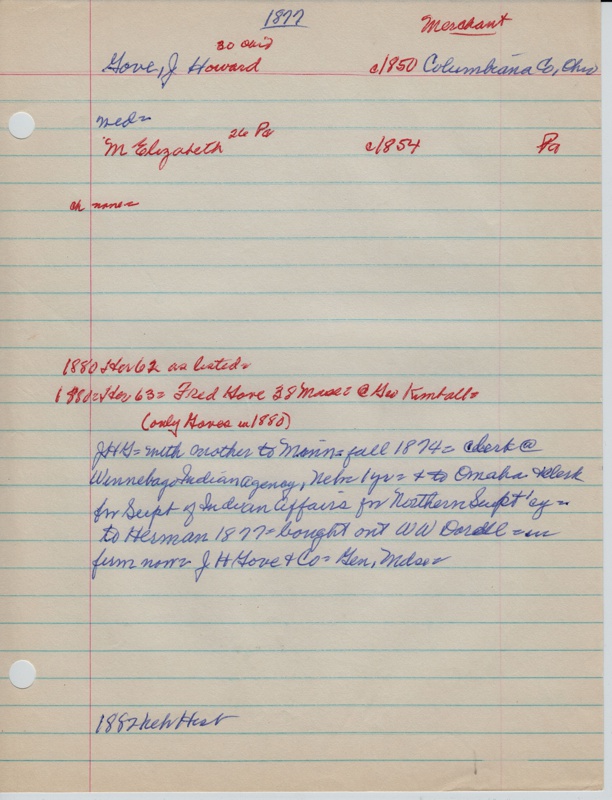 1877
Merchant
30 Ohio
Gove, J Howard c/1850 Columbiana Co, Ohio
med=
"M Elizabeth 26 Pa c/1854 Pa
ch none=
1880=Her 62 as listed=
1880=Her 63= Fred Gove 38 Mass= @ Geo Kimball=
(only Goves in 1880)
JHG= with mother to Minn= fall 1874= clerk @
Winnebago Indian agency, Neb= 1yr= & to Omaha & clerk
for Supt of Indian Affairs for Northern Supt'cy=
to Herman 1877= bought out WW Dordll= in
firm now= J H Gove & Co= Gen, Mdse=
1882 Neb Hist